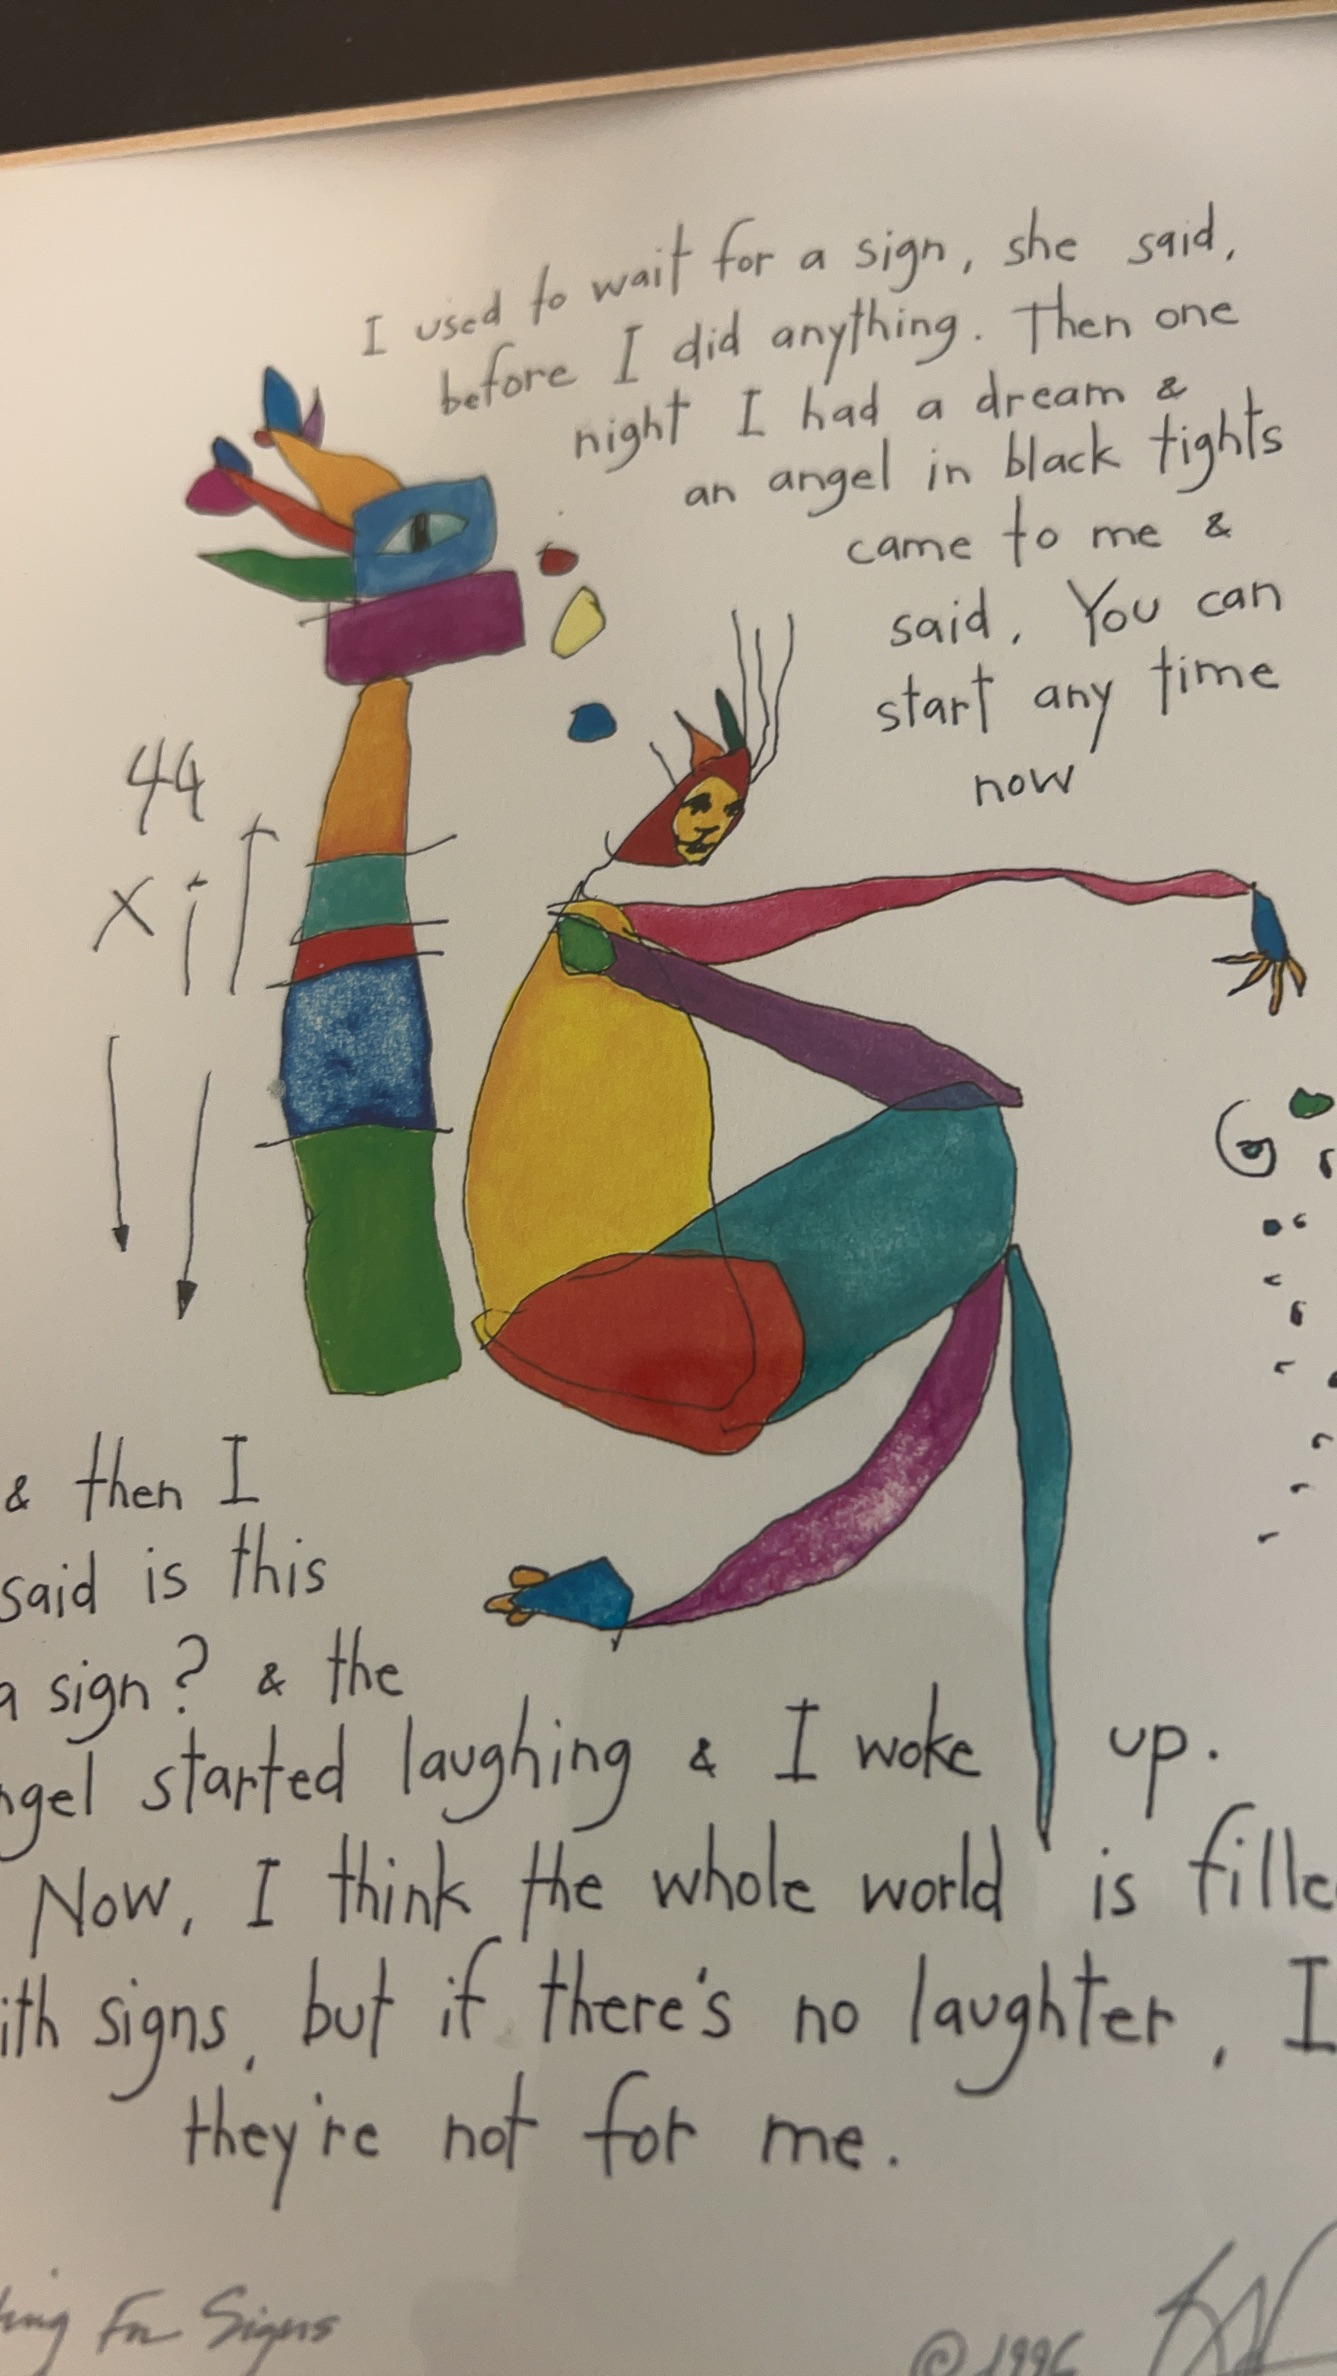 I used to wait for a sign, she said,
before I did anything. Then one
night I had a dream &
an angel in black tights
came to me &
said, You can
start any time
now
44
& then I
said is this
a sign? & the
ngel started laughing & I woke up.
Now, I think the whole world is fille
ith signs, but if there's no laughter, I
they're not for me.
ing For Signs
© 1996